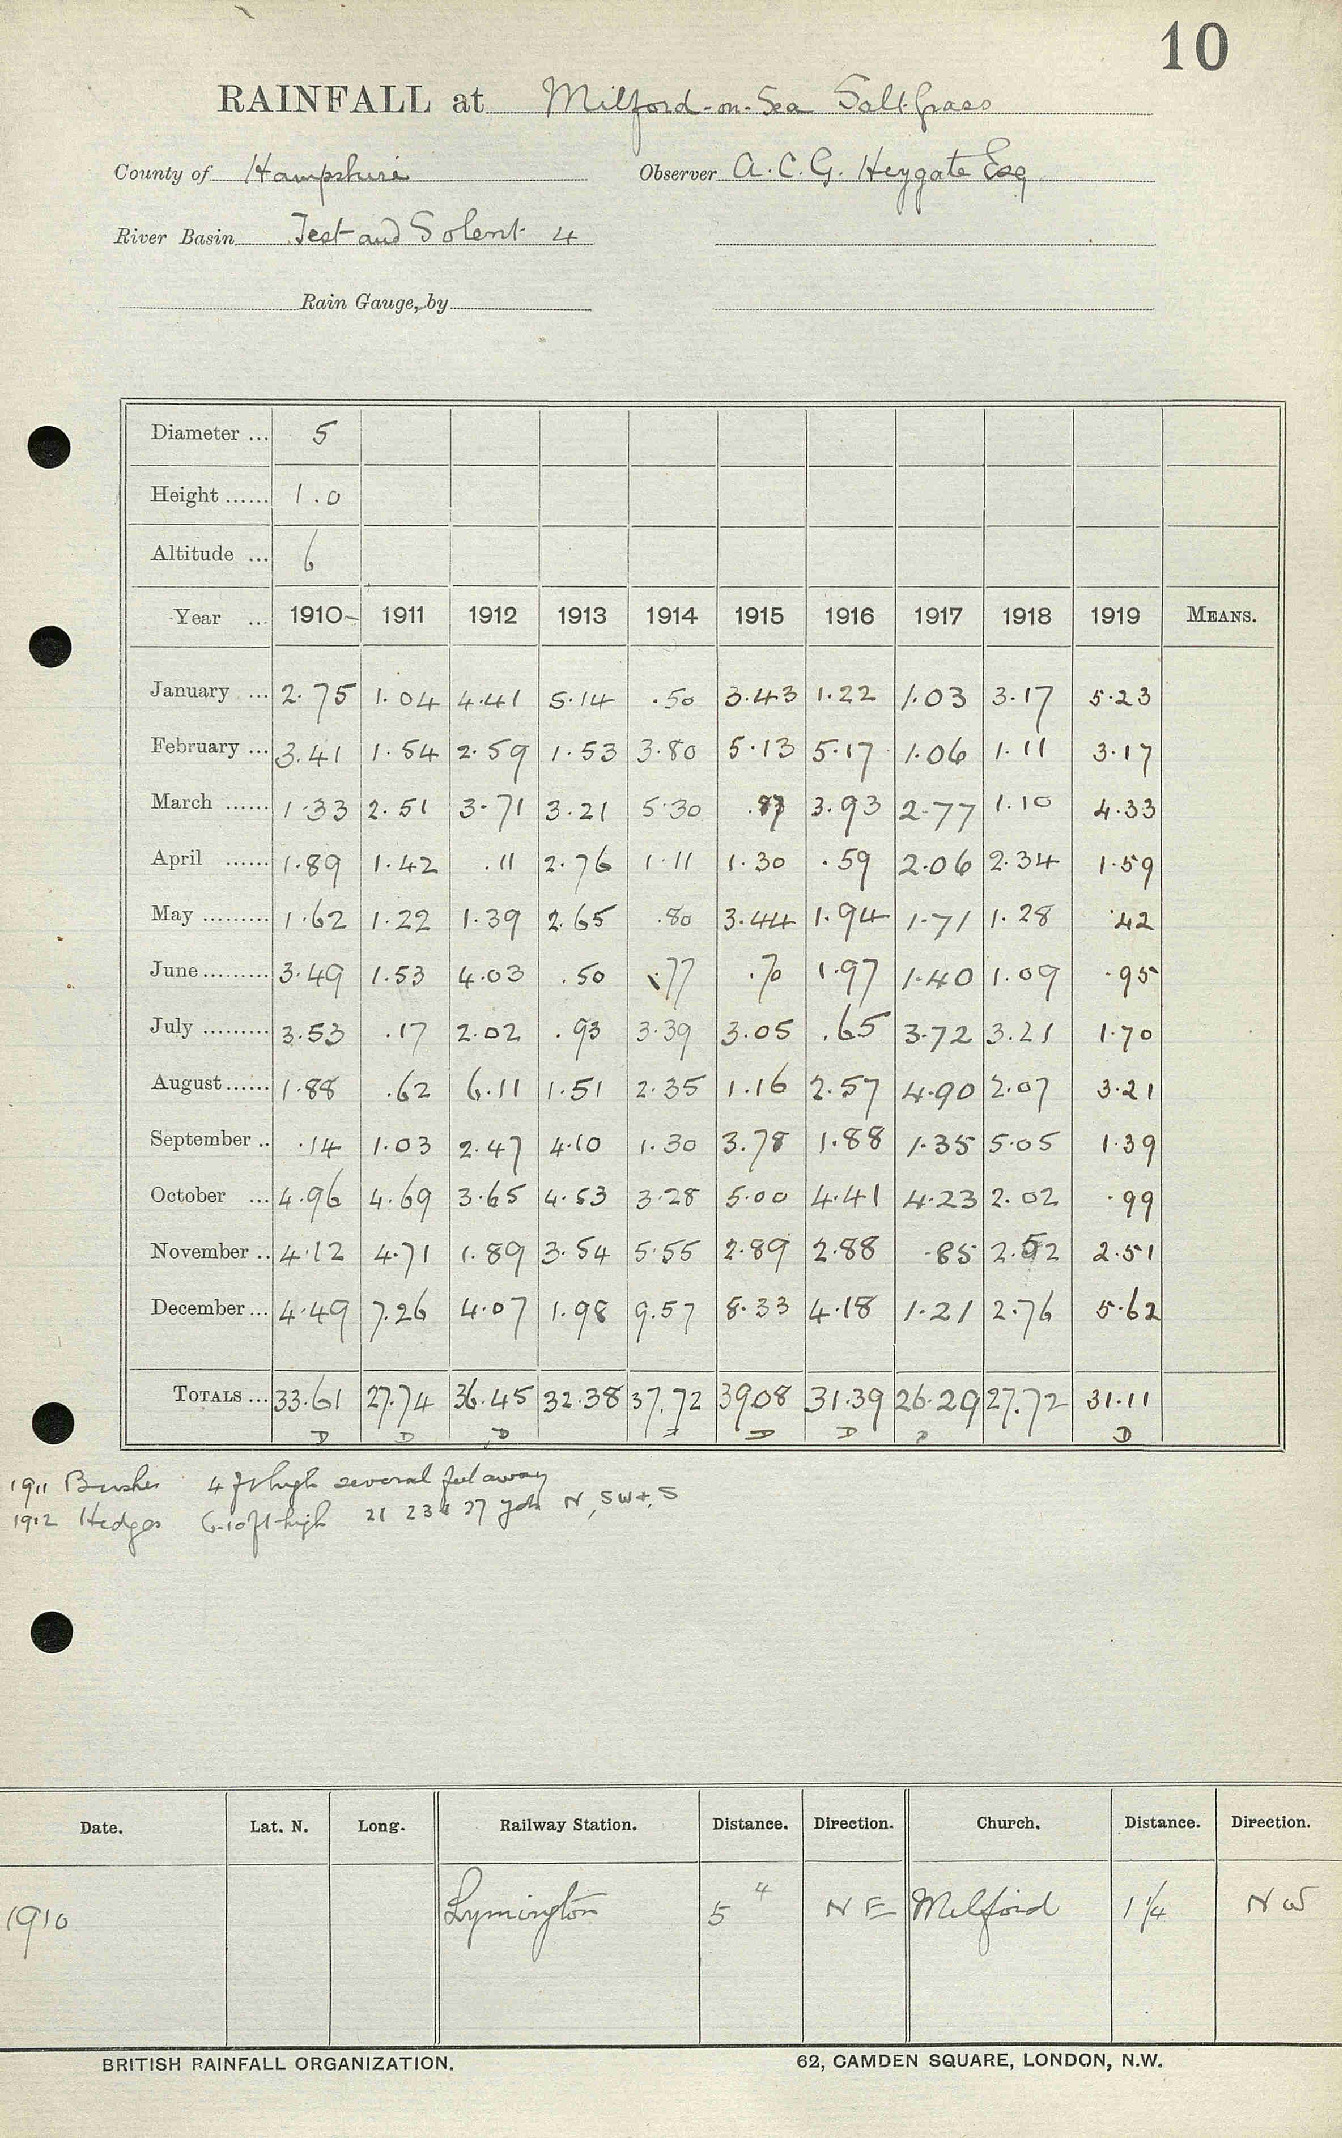 10
RAINFALL at Milford-on-Sea Saltgrass
County of Hampshire Observer A.C.G. Heygate Esq
River Basin Test and Solent 4
Rain Gauge, by
Diameter ... 5
Height ...... 1.0
Altitude ... 6
Year ... 1910- 1911 1912 1913 1914 1915 1916 1917 1918 1919 MEANS.
January ... 2.75 1.04 4.41 5.14 .50 3.43 1.22 1.03 3.17 5.23
February ... 3.41 1.54 2.59 1.53 3.80 5.13 5.17 1.06 1.11 3.17
March ...... 1.33 2.51 3.71 3.21 5.30 .87 3.93 2.77 1.10 4.33
April ...... 1.89 1.42 .11 2.76 1.11 1.30 .59 2.06 2.34 1.59
May ......... 1.62 1.22 1.39 2.65 .80 3.44 1.94 1.71 1.28 .42
June ......... 3.49 1.53 4.03 .50 .77 .70 1.97 1.40 1.09 .95
July ......... 3.53 .17 2.02 .93 3.39 3.05 .65 3.72 3.21 1.70
August ...... 1.88 .62 6.11 1.51 2.35 1.16 2.57 4.90 2.07 3.21
September .. .14 1.03 2.47 4.10 1.30 3.78 1.88 1.35 5.05 1.39
October ... 4.96 4.69 3.65 4.53 3.28 5.00 4.41 4.23 2.02 .99
November .. 4.12 4.71 1.89 3.54 5.55 2.89 2.88 .85 2.52 2.51
December ... 4.49 7.26 4.07 1.98 9.57 8.33 4.18 1.21 2.76 5.62
TOTALS ... 33.61 27.74 36.45 32.38 37.72 39.08 31.39 26.29 27.72 31.11
D D D D D D D
1911 Bushes 4 ft high several feet away
1912 Hedges 6-10 ft high 21 23 & 27 yds N, SW &, S
Date. Lat. N. Long. Railway Station. Distance. Direction. Church. Distance. Direction.
1910 Lymington 5 4 NE Milford 1 1/4 NW
BRITISH RAINFALL ORGANIZATION. 62, CAMDEN SQUARE, LONDON, N.W.